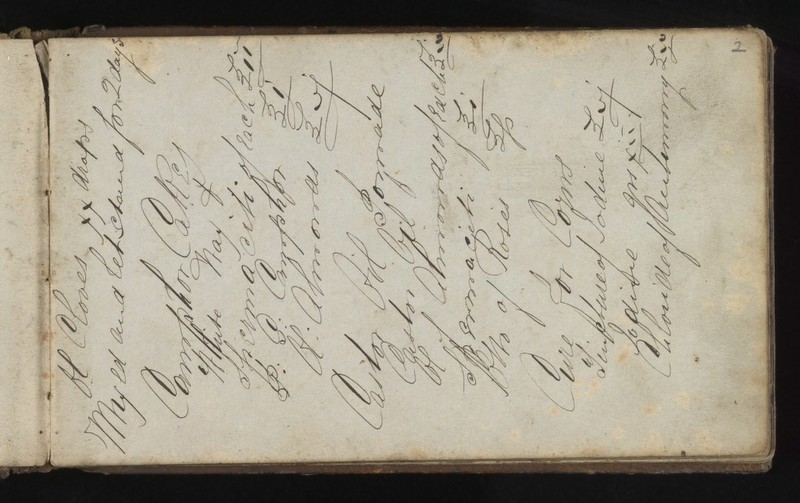 2
Ol Cloves xx drops
Mixed and let stand for 2 days
Camphor Cakes
White Wax &
Spermaciti of each ℥ii
P. G. Camphor ℥i
Ol. Almonds ℥vj
Castor Oil Pomade
Castor Oil
Ol Almonds of each
Spermaciti ℥i
Otto of Roses
Cure for Corns
Tincture of Iodine ʒvj
Iodine grs xij
Chloride of Antimony